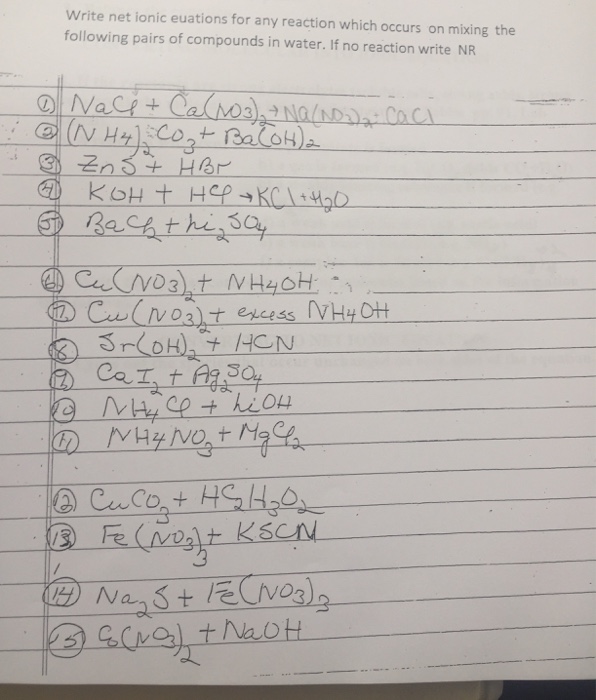 Write net ionic euations for any reaction which occurs on mixing the
following pairs of compounds in water. If no reaction write NR
① NaCl + Ca(NO3)2 → Na(NO3)2 + CaCl
② (NH4)2CO3 + Ba(OH)2
③ ZnS + HBr
④ KOH + HCl → KCl + H2O
⑤ BaCl2 + Li2SO4
⑥ Cu(NO3)2 + NH4OH
⑦ Cu(NO3)2 + excess NH4OH
⑧ Sr(OH)2 + HCN
⑨ CaI2 + Ag2SO4
⑩ NH4Cl + LiOH
⑪ NH4NO3 + MgCl2
⑫ CuCO3 + HC2H3O2
⑬ Fe(NO3)3 + KSCN
⑭ Na2S + Fe(NO3)3
⑮ Co(NO3)2 + NaOH